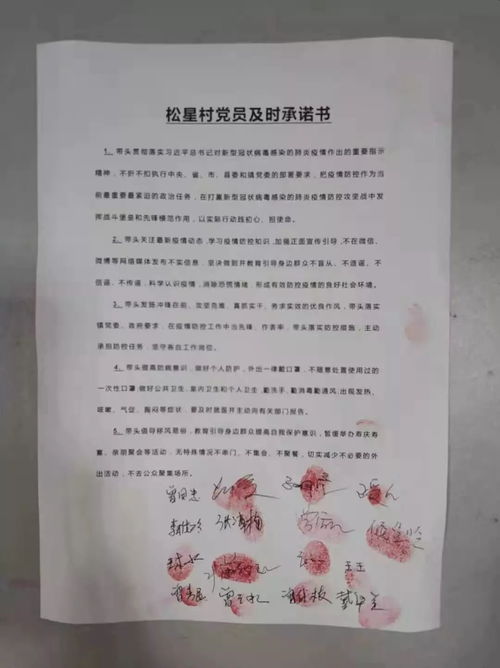 松星村党员及时承诺书
1、带头贯彻落实习近平总书记对新型冠状病毒感染的肺炎疫情作出的重要指示
精神，不折不扣执行中央、省、市、县委和镇党委的部署要求，把疫情防控作为当
前最重要最紧迫的政治任务，在打赢新型冠状病毒感染的肺炎疫情防控攻坚战中发
挥战斗堡垒和先锋模范作用，以实际行动践初心、担使命。
2、带头关注最新疫情动态，学习疫情防控知识，加强正面宣传引导，不在微信、
微博等网络媒体发布不实信息，坚决做到并教育引导身边群众不盲从、不造谣、不
信谣、不传谣，科学认识疫情，消除恐慌情绪，形成有效防控疫情的良好社会环境。
3、带头发扬冲锋在前、攻坚克难、真抓实干、务求实效的优良作风，带头落实
镇党委、政府要求，在疫情防控工作中当先锋、作表率，带头落实防控措施，主动
承担防控任务，坚守各自工作岗位。
4、带头提高防病意识，做好个人防护，外出一律戴口罩，不随意处置使用过的
一次性口罩；做好公共卫生、室内卫生和个人卫生，勤洗手、勤消毒勤通风，出现发热、
咳嗽、气促、胸闷等症状，要及时就医并主动向有关部门报告。
5、带头倡导移风易俗，教育引导身边群众提高自我保护意识，暂缓举办寿庆寿
宴、亲朋聚会等活动，无特殊情况不串门、不集会、不聚餐，切实减少不必要的外
出活动，不去公众聚集场所。